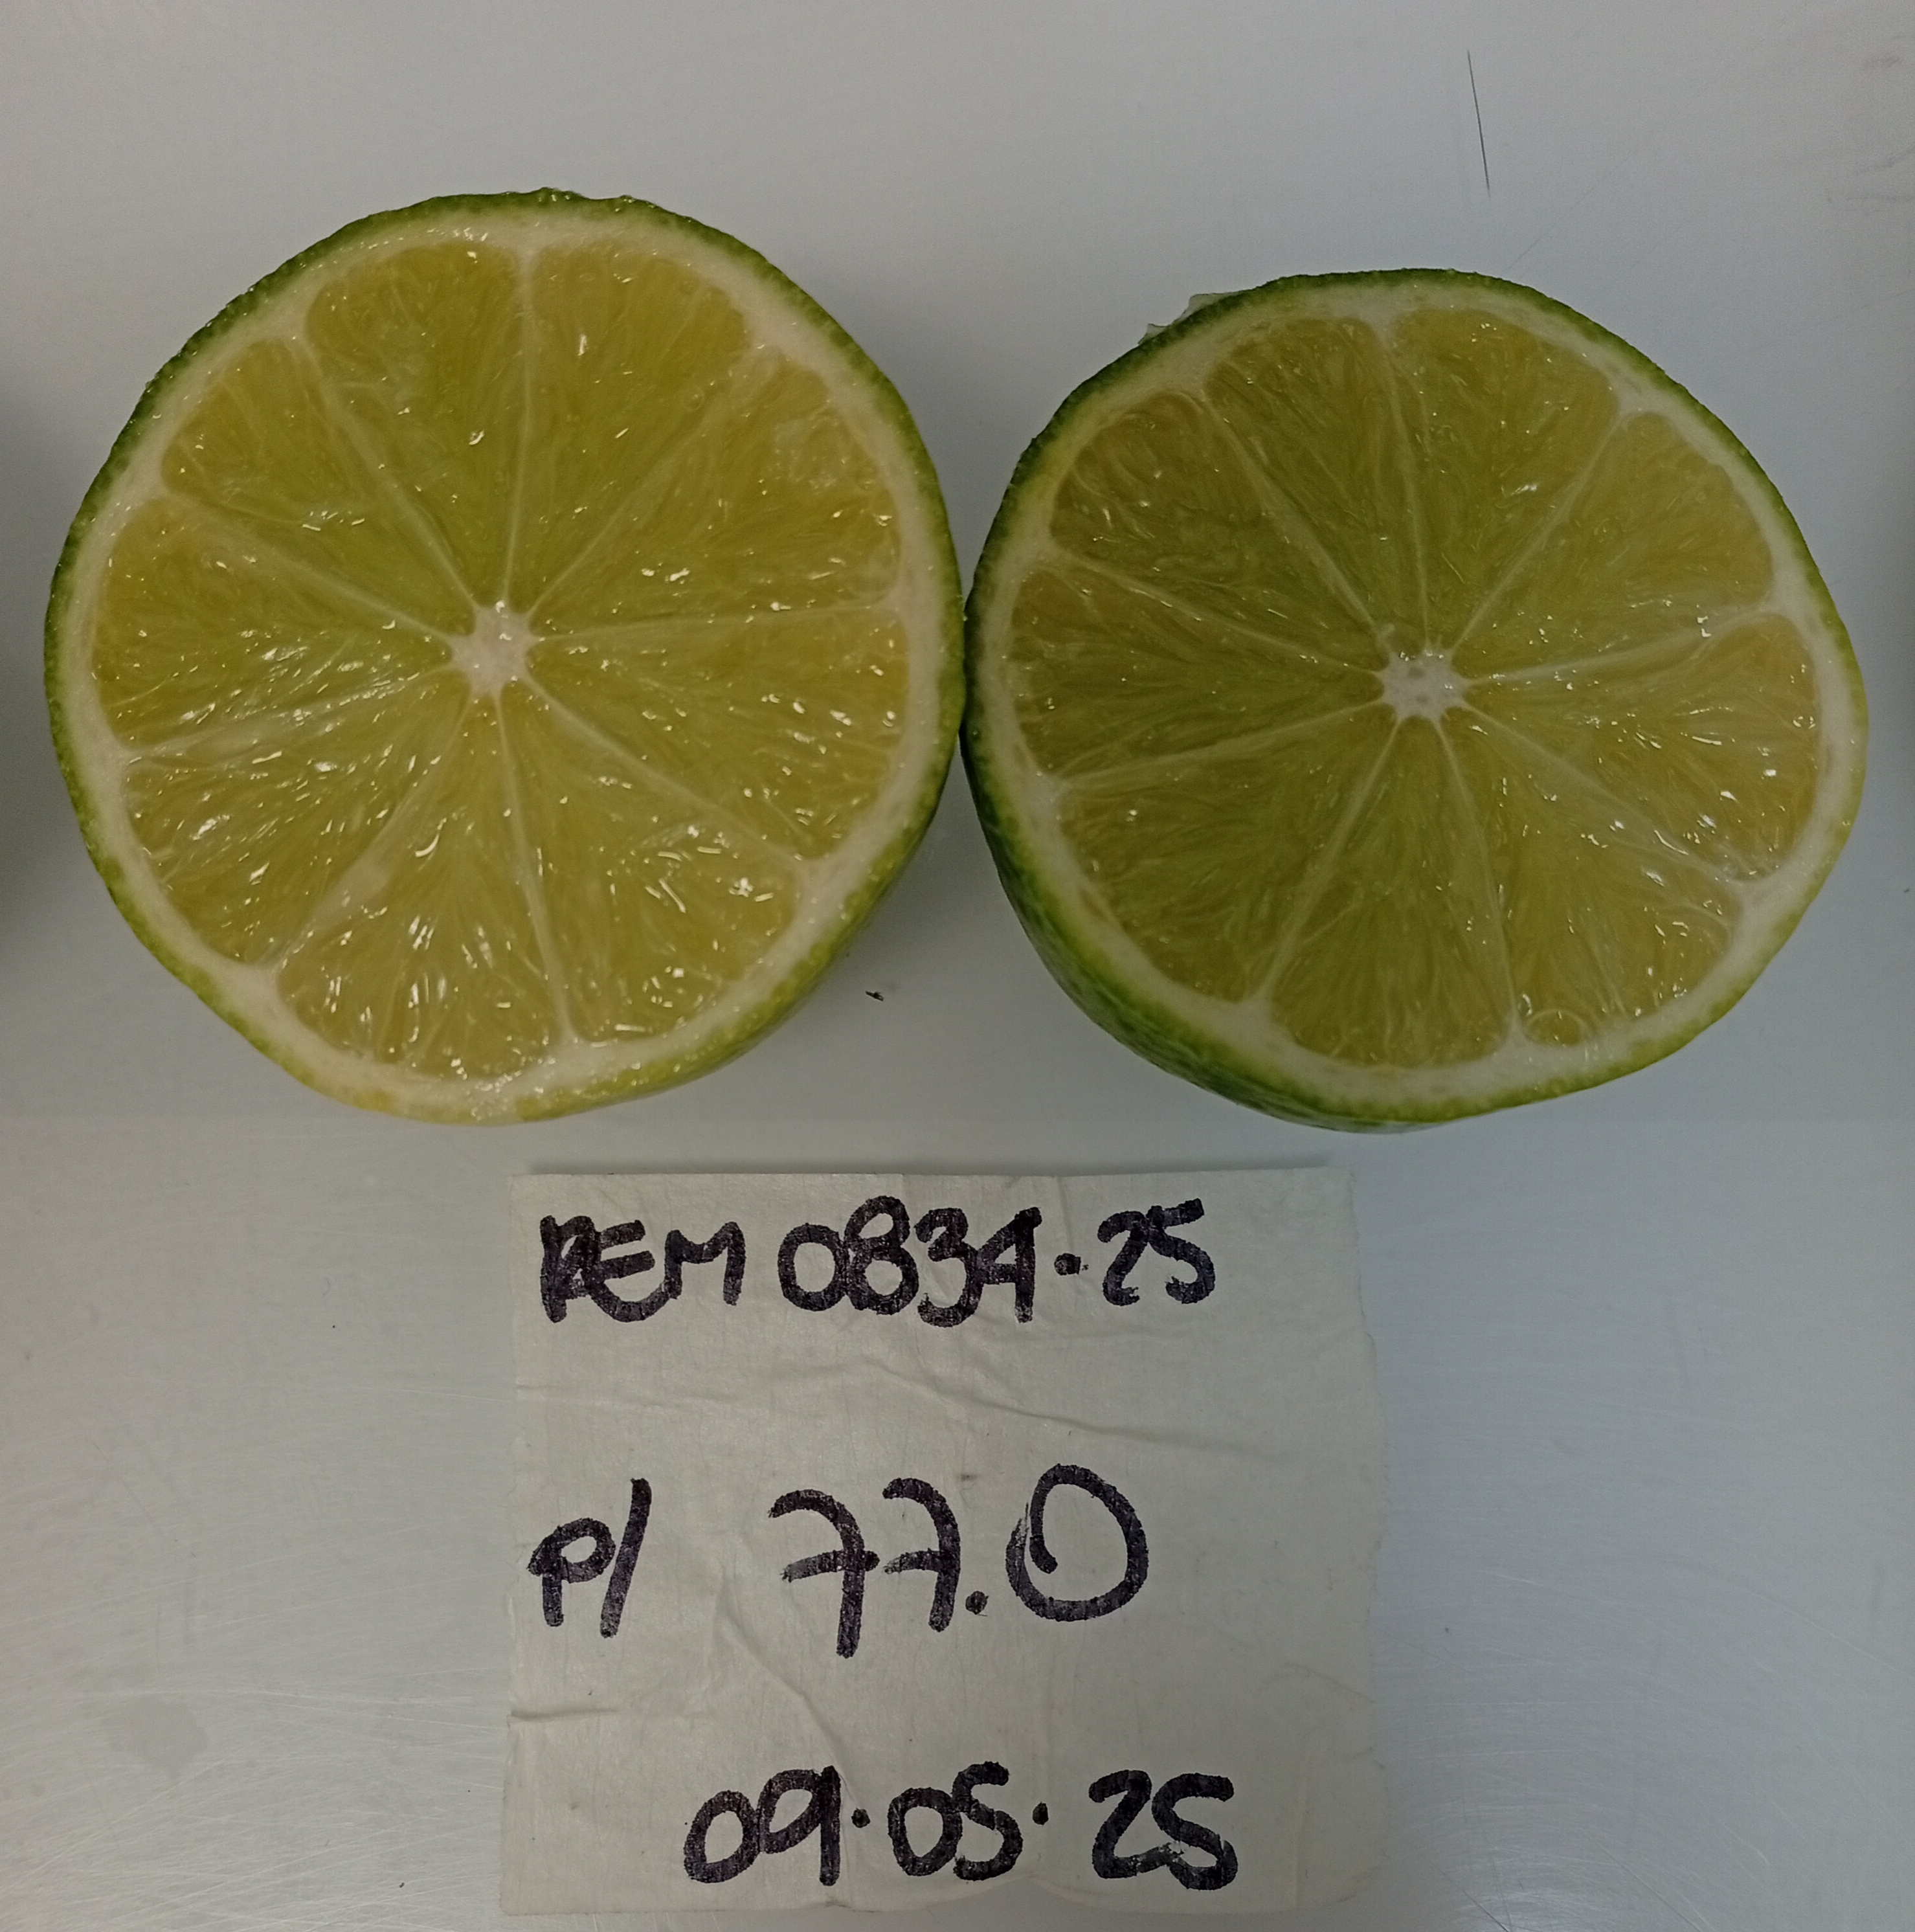 REM 0834.25
P/ 77.0
09.05.25